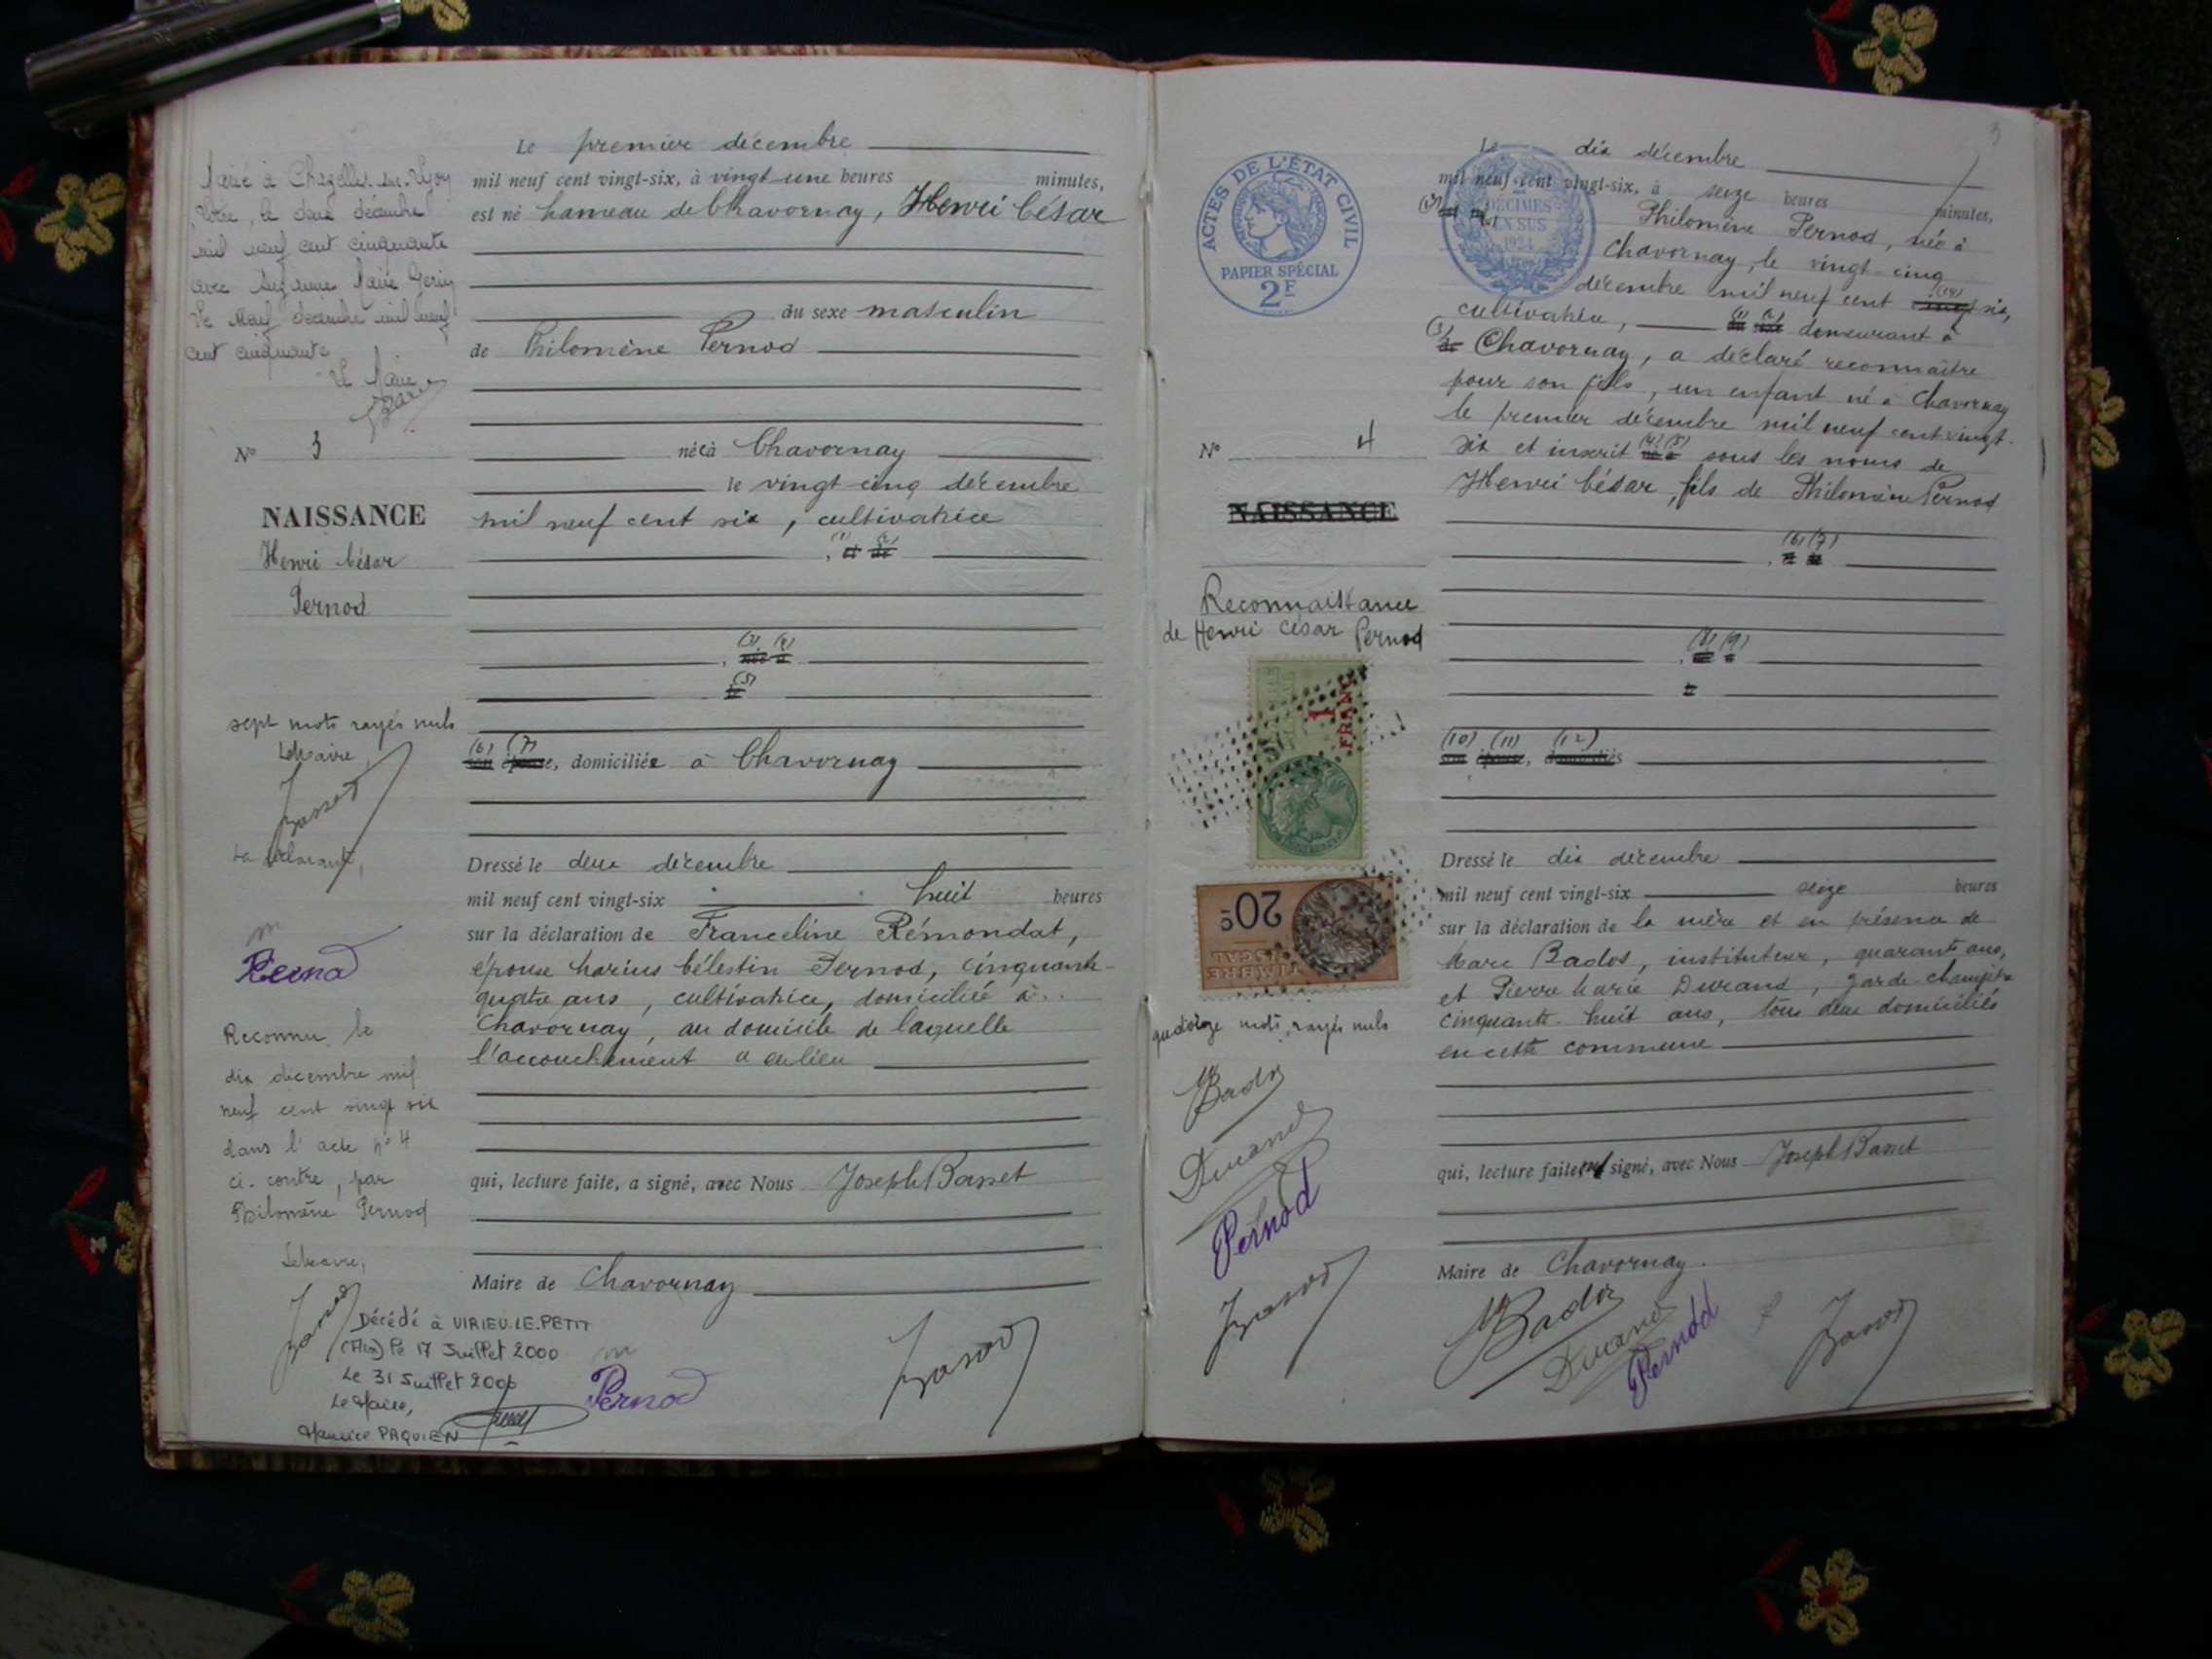 Marié à Chazelles-sur-Lyon
Loire, le deux décembre
mil neuf cent cinquante
avec Suzanne Marie
Le neuf décembre mil neuf
cent cinquante
Le Maire
N° 3
NAISSANCE
Henri César
Pernod
sept mots rayés nuls
Le Maire,
Basset
La déclarante,
Pernod
Reconnu le
dix décembre mil
neuf cent vingt six
dans l'acte n° 4
ci-contre, par
Philomène Pernod
Le Maire,
Basset
Décédé à VIRIEU-LE-PETIT
(Ain) le 17 Juillet 2000
Le 31 Juillet 2000
Le Maire,
Maurice PAQUIEN
Le première décembre
mil neuf cent vingt-six, à vingt une heures minutes,
est né hameau de Chavornay, Henri César
du sexe masculin
de Philomène Pernod
née à Chavornay
le vingt-cinq décembre
mil neuf cent six, cultivatrice
(1) (2)
, et de
(3) (4)
, née à
(5)
le
(6) (7)
son épouse, domiciliée à Chavornay
Dressé le deux décembre
mil neuf cent vingt-six huit heures
sur la déclaration de Franceline Rémondat,
épouse Marius Célestin Pernod, cinquante-
quatre ans, cultivatrice, domiciliée à
Chavornay, au domicile de laquelle
l'accouchement a eu lieu
qui, lecture faite, a signé, avec Nous Joseph Basset
Maire de Chavornay
Pernod
Basset
3
ACTES DE L'ÉTAT CIVIL
PAPIER SPÉCIAL
2F
N° 4
NAISSANCE
Reconnaissance
de Henri César Pernod
1 FRANC
20c
TIMBRE FISCAL
quatorze mots rayés nuls
M Bados
Durand
Pernod
Basset
DÉCIMES
EN SUS
1924
Le dix décembre
mil neuf cent vingt-six, à seize heures minutes,
(13)
Philomène Pernod, née à
Chavornay, le vingt-cinq
décembre mil neuf cent (14) six,
cultivatrice, (1) (2) demeurant à
(3) Chavornay, a déclaré reconnaître
pour son fils, un enfant né à Chavornay
le premier décembre mil neuf cent vingt-
six et inscrit (4) (5) sous les noms de
Henri César, fils de Philomène Pernod
(6) (7)
(8) (9)
(10) (11) (12)
son épouse, domiciliés
Dressé le dix décembre
mil neuf cent vingt-six seize heures
sur la déclaration de la mère et en présence de
Marc Bados, instituteur, quarante ans,
et Pierre Marie Durand, garde-champêtre
cinquante-huit ans, tous deux domiciliés
en cette commune
qui, lecture faite, ont signé, avec Nous Joseph Basset
Maire de Chavornay.
M Bados
Durand
Pernod
Basset